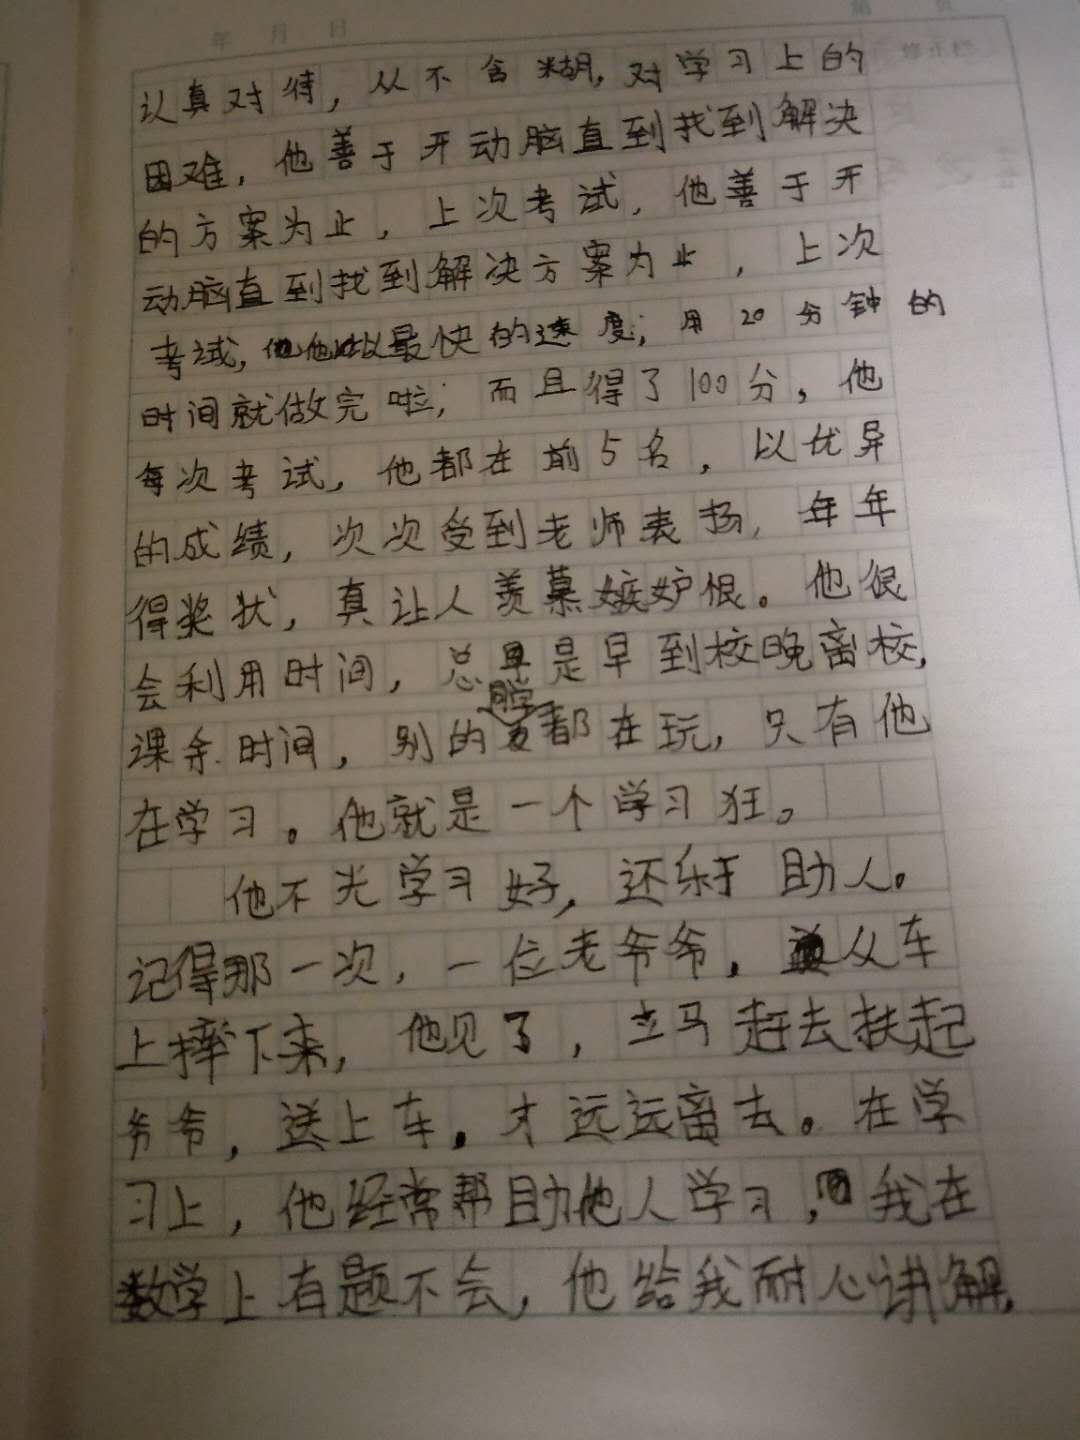 年 月 日
第 页
修正栏
认真对待，从不含糊，对学习上的
困难，他善于开动脑直到找到解决
的方案为止，上次考试，他善于开
动脑直到找到解决方案为止，上次
考试，他他以最快的速度；用20分钟的
时间就做完啦；而且得了100分，他
每次考试，他都在前5名，以优异
的成绩，次次受到老师表扬，年年
得奖状，真让人羡慕嫉妒恨。他很
会利用时间，总是早到校晚离校，
同学
课余时间，别的都在玩，只有他
在学习。他就是一个学习狂。
他不光学习好，还乐于助人。
记得那一次，一位老爷爷，从车
上摔下来，他见了，立马赶去扶起
爷爷，送上车。才远远离去。在学
习上，他经常帮助他人学习，我在
数学上有题不会，他给我耐心讲解，